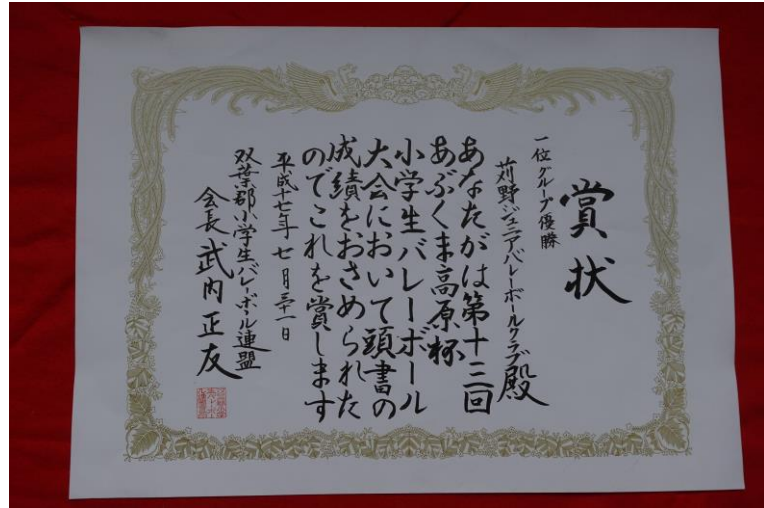 賞状
一位グループ優勝
苅野ジュニアバレーボールクラブ殿
あなたがは第十三回
あぶくま高原杯
小学生バレーボール
大会において頭書の
成績をおさめられた
のでこれを賞します
平成十七年七月三十一日
双葉郡小学生バレーボール連盟
会長 武内正友